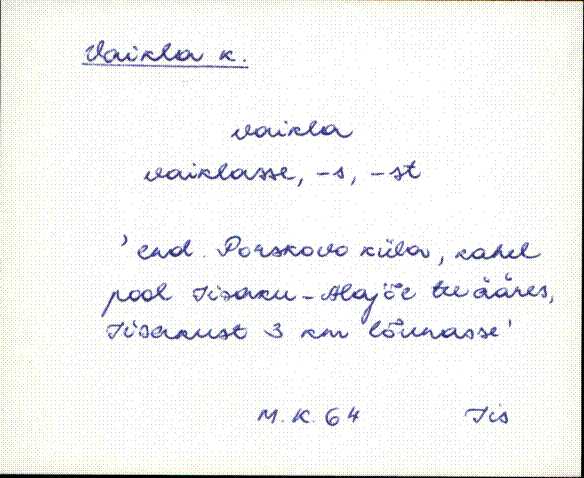 Vaikla k.
vaikla
vaiklasse, -s, -st
'end. Porskovo küla, kahel
pool Iisaku-Alajõe tee ääres,
Iisakust 3 km lõunasse'
M.K. 64 Iis